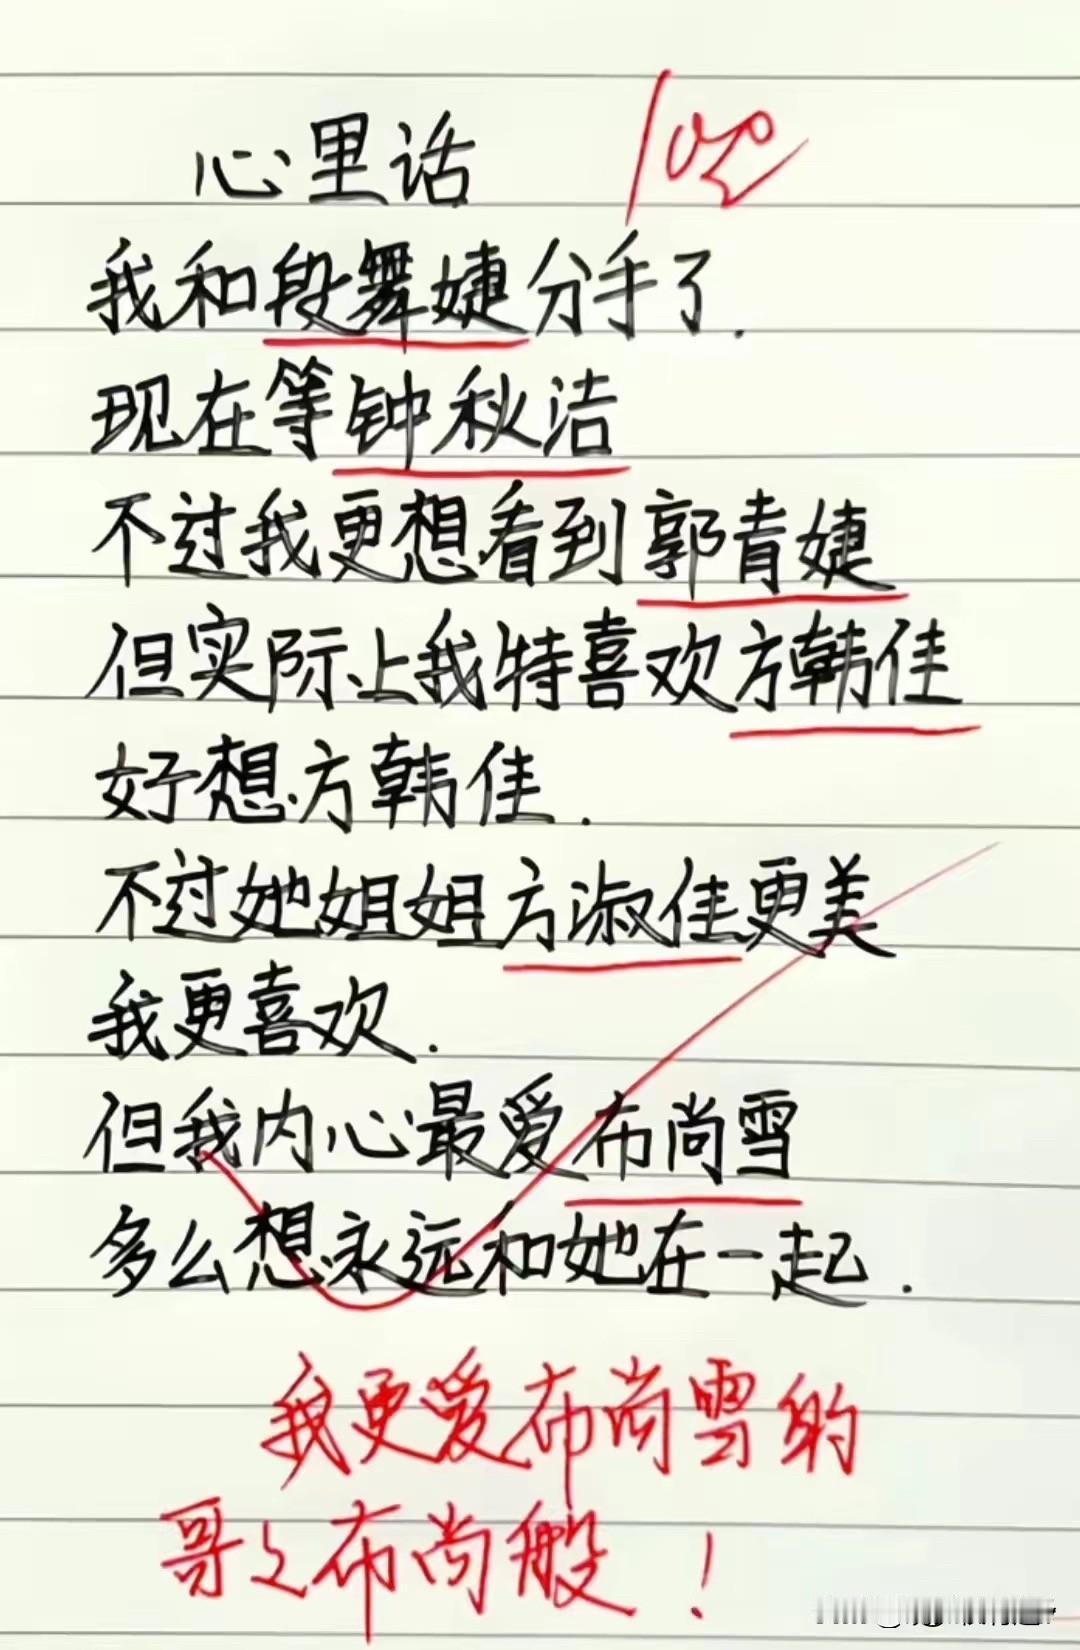 心里话 100
我和段舞婕分手了.
现在等钟秋洁
不过我更想看到郭青婕
但实际上我特喜欢方韩佳
好想方韩佳.
不过她姐姐方淑佳更美
我更喜欢.
但我内心最爱布尚雪
多么想永远和她在一起.
我更爱布尚雪的
哥々布尚般!